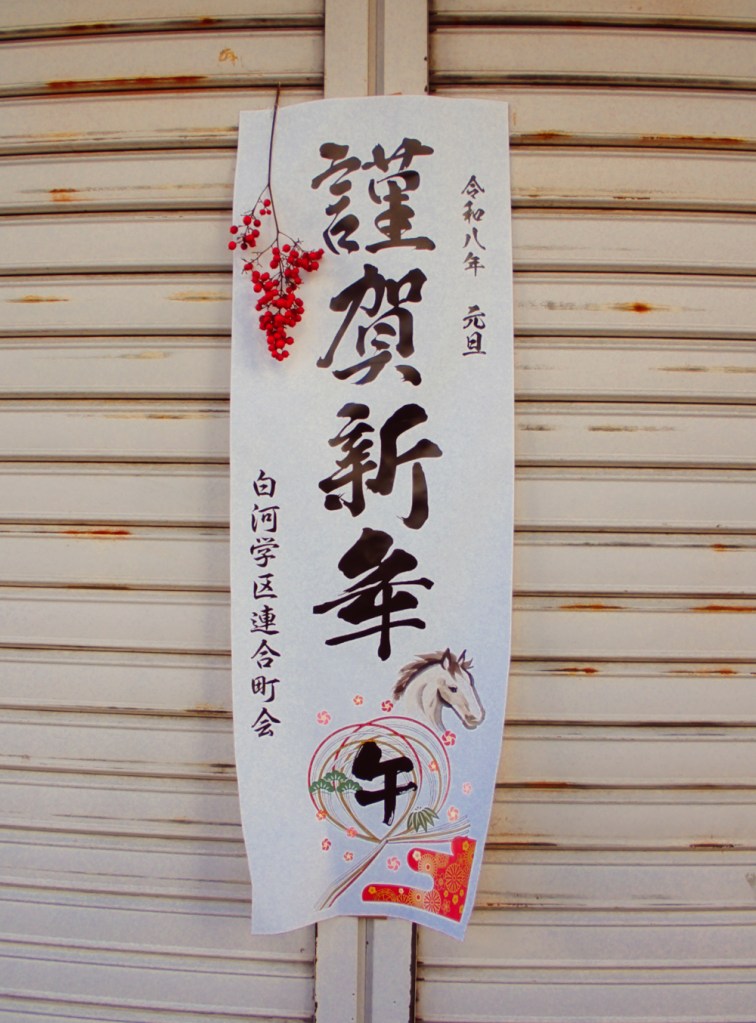 令和八年 元旦
謹賀新年
午
白河学区連合町会